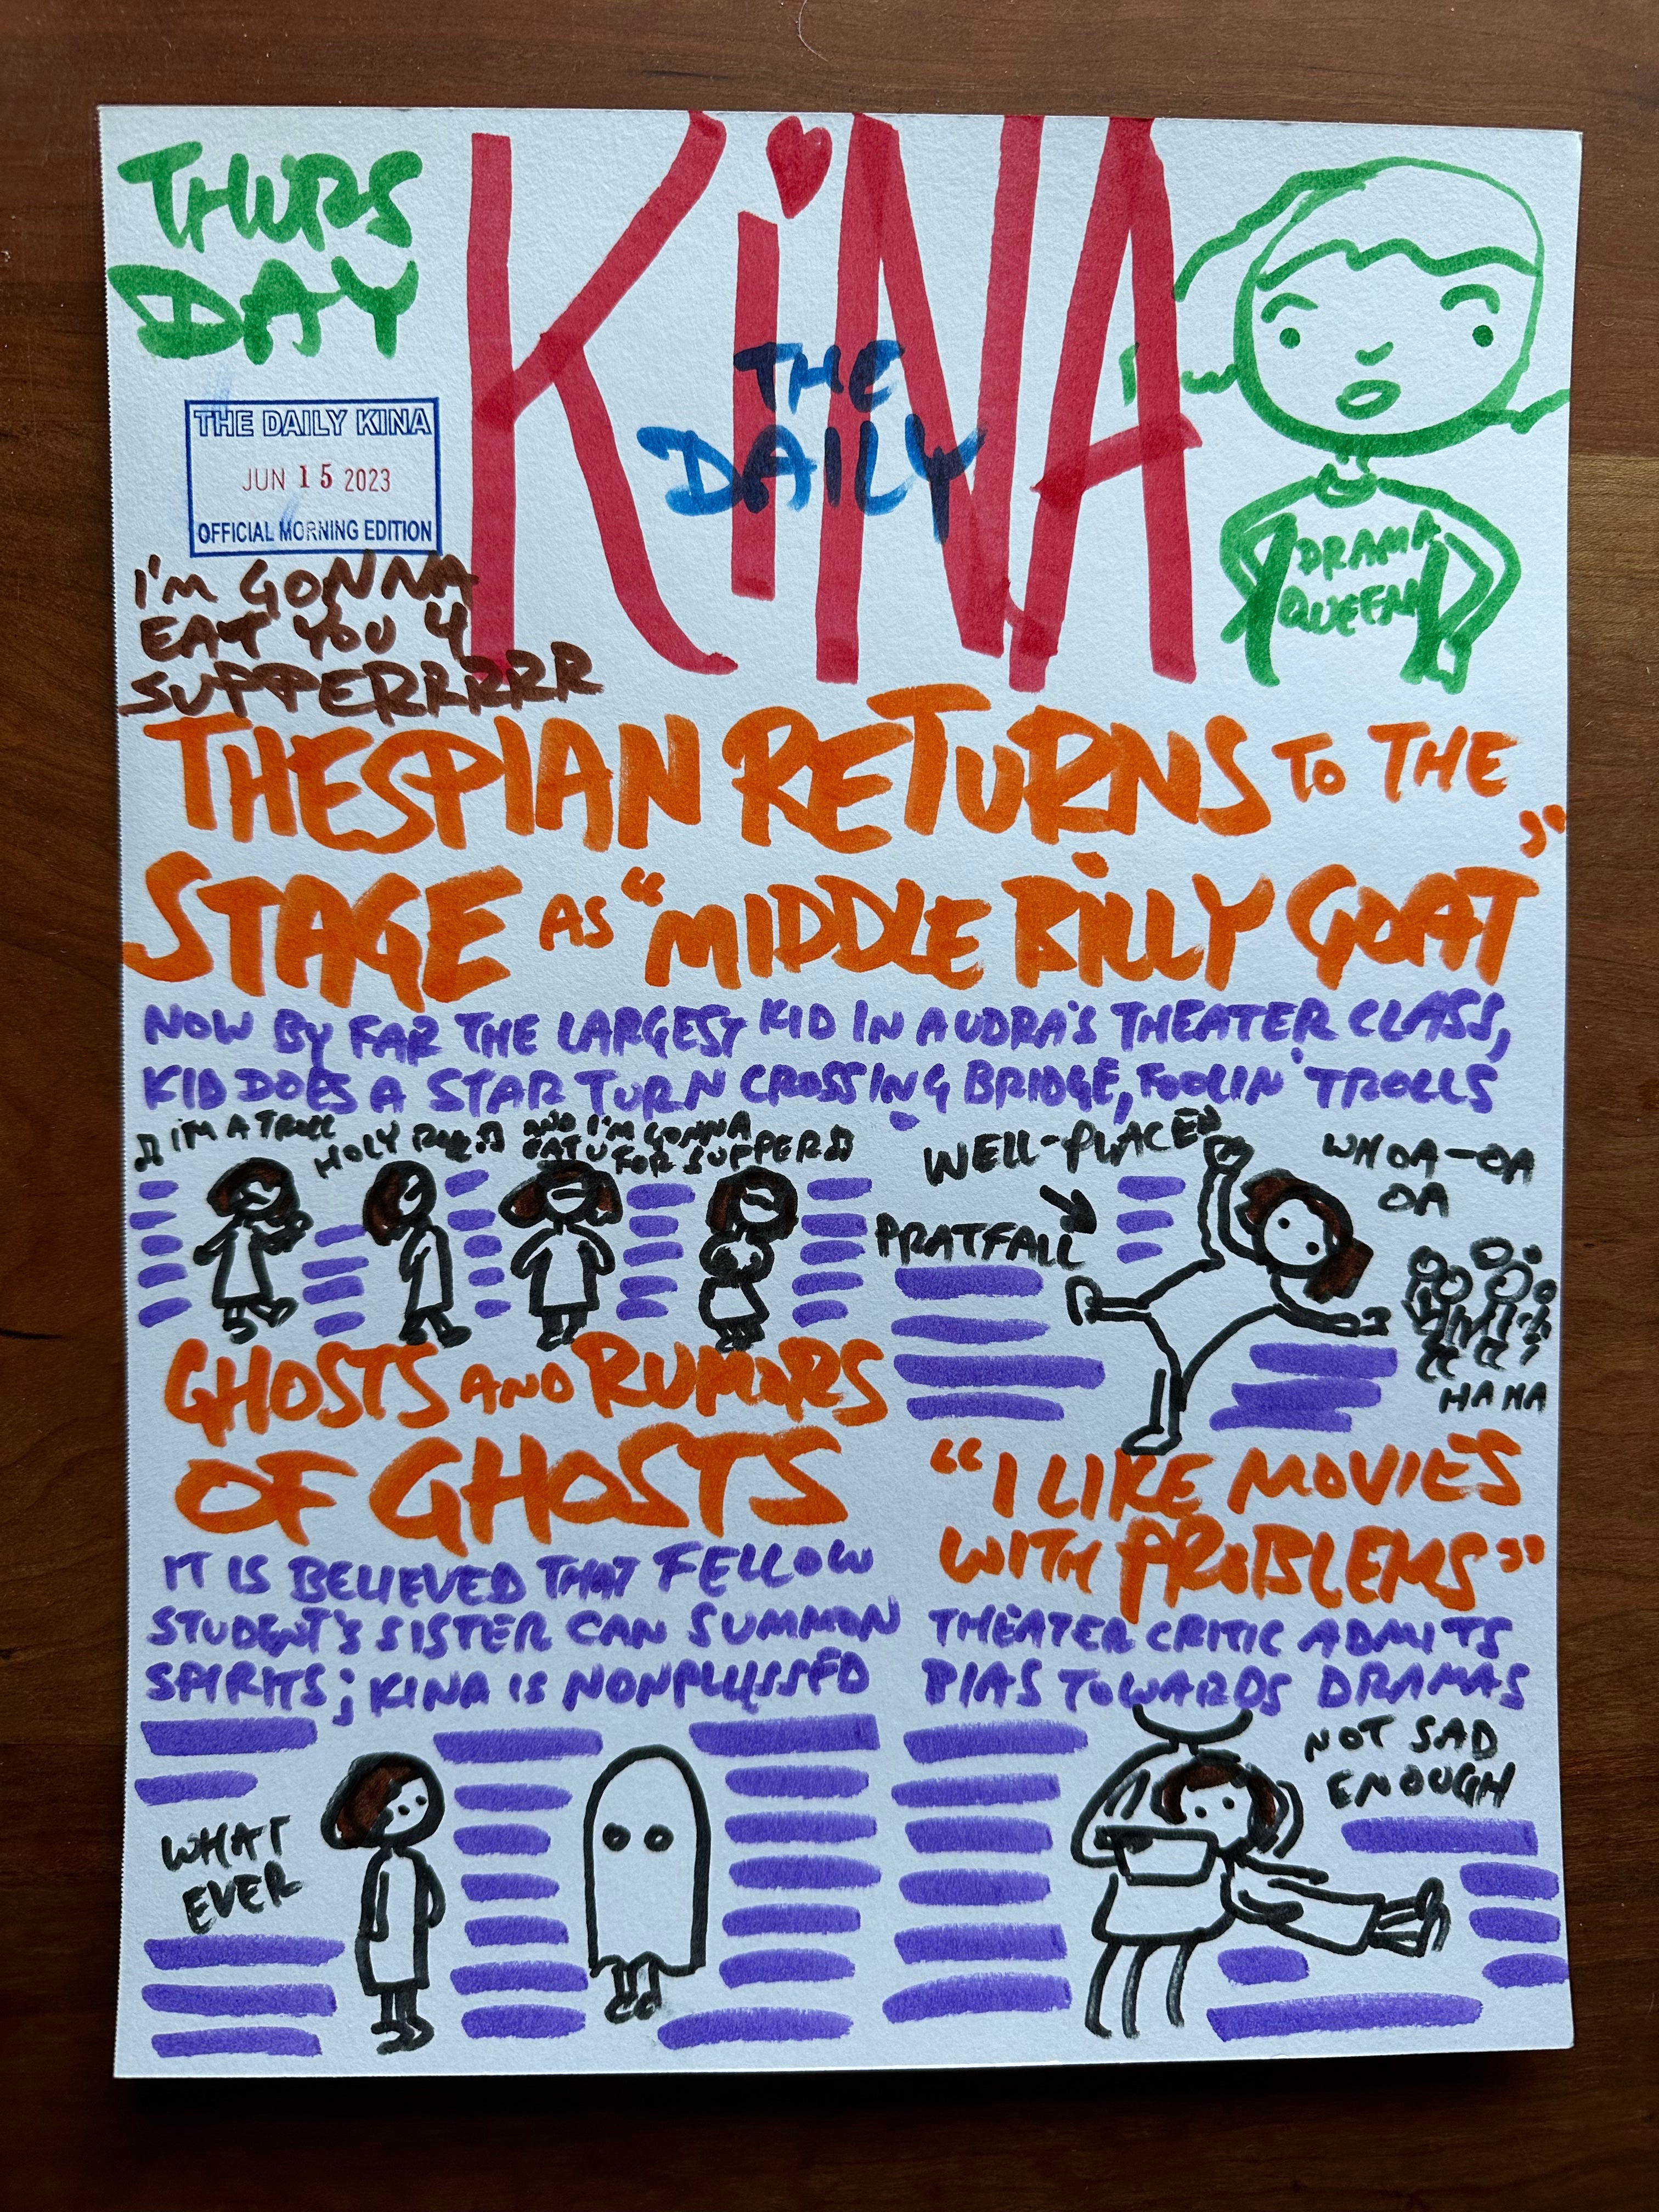 THURS
DAY
KiNA
THE
DAILY
THE DAILY KINA
JUN 15 2023
OFFICIAL MORNING EDITION
DRAMA
QUEEN
I'M GONNA
EAT YOU 4
SUPPERRRRRR
THESPIAN RETURNS TO THE
STAGE AS "MIDDLE BILLY GOAT"
NOW BY FAR THE LARGEST KID IN AUDRA'S THEATER CLASS,
KID DOES A STAR TURN CROSSING BRIDGE, FOOLIN' TROLLS
♫ I'M A TROLL
HOLY ♫
AND I'M GONNA
EAT U FOR SUPPER ♫
WELL-PLACED
PRATFALL
WHOA-OA
OA
HA HA
GHOSTS AND RUMORS
OF GHOSTS
IT IS BELIEVED THAT FELLOW
STUDENT'S SISTER CAN SUMMON
SPIRITS; KINA IS NONPLUSSED
WHAT
EVER
"I LIKE MOVIES
WITH PROBLEMS"
THEATER CRITIC ADMITS
BIAS TOWARDS DRAMAS
NOT SAD
ENOUGH